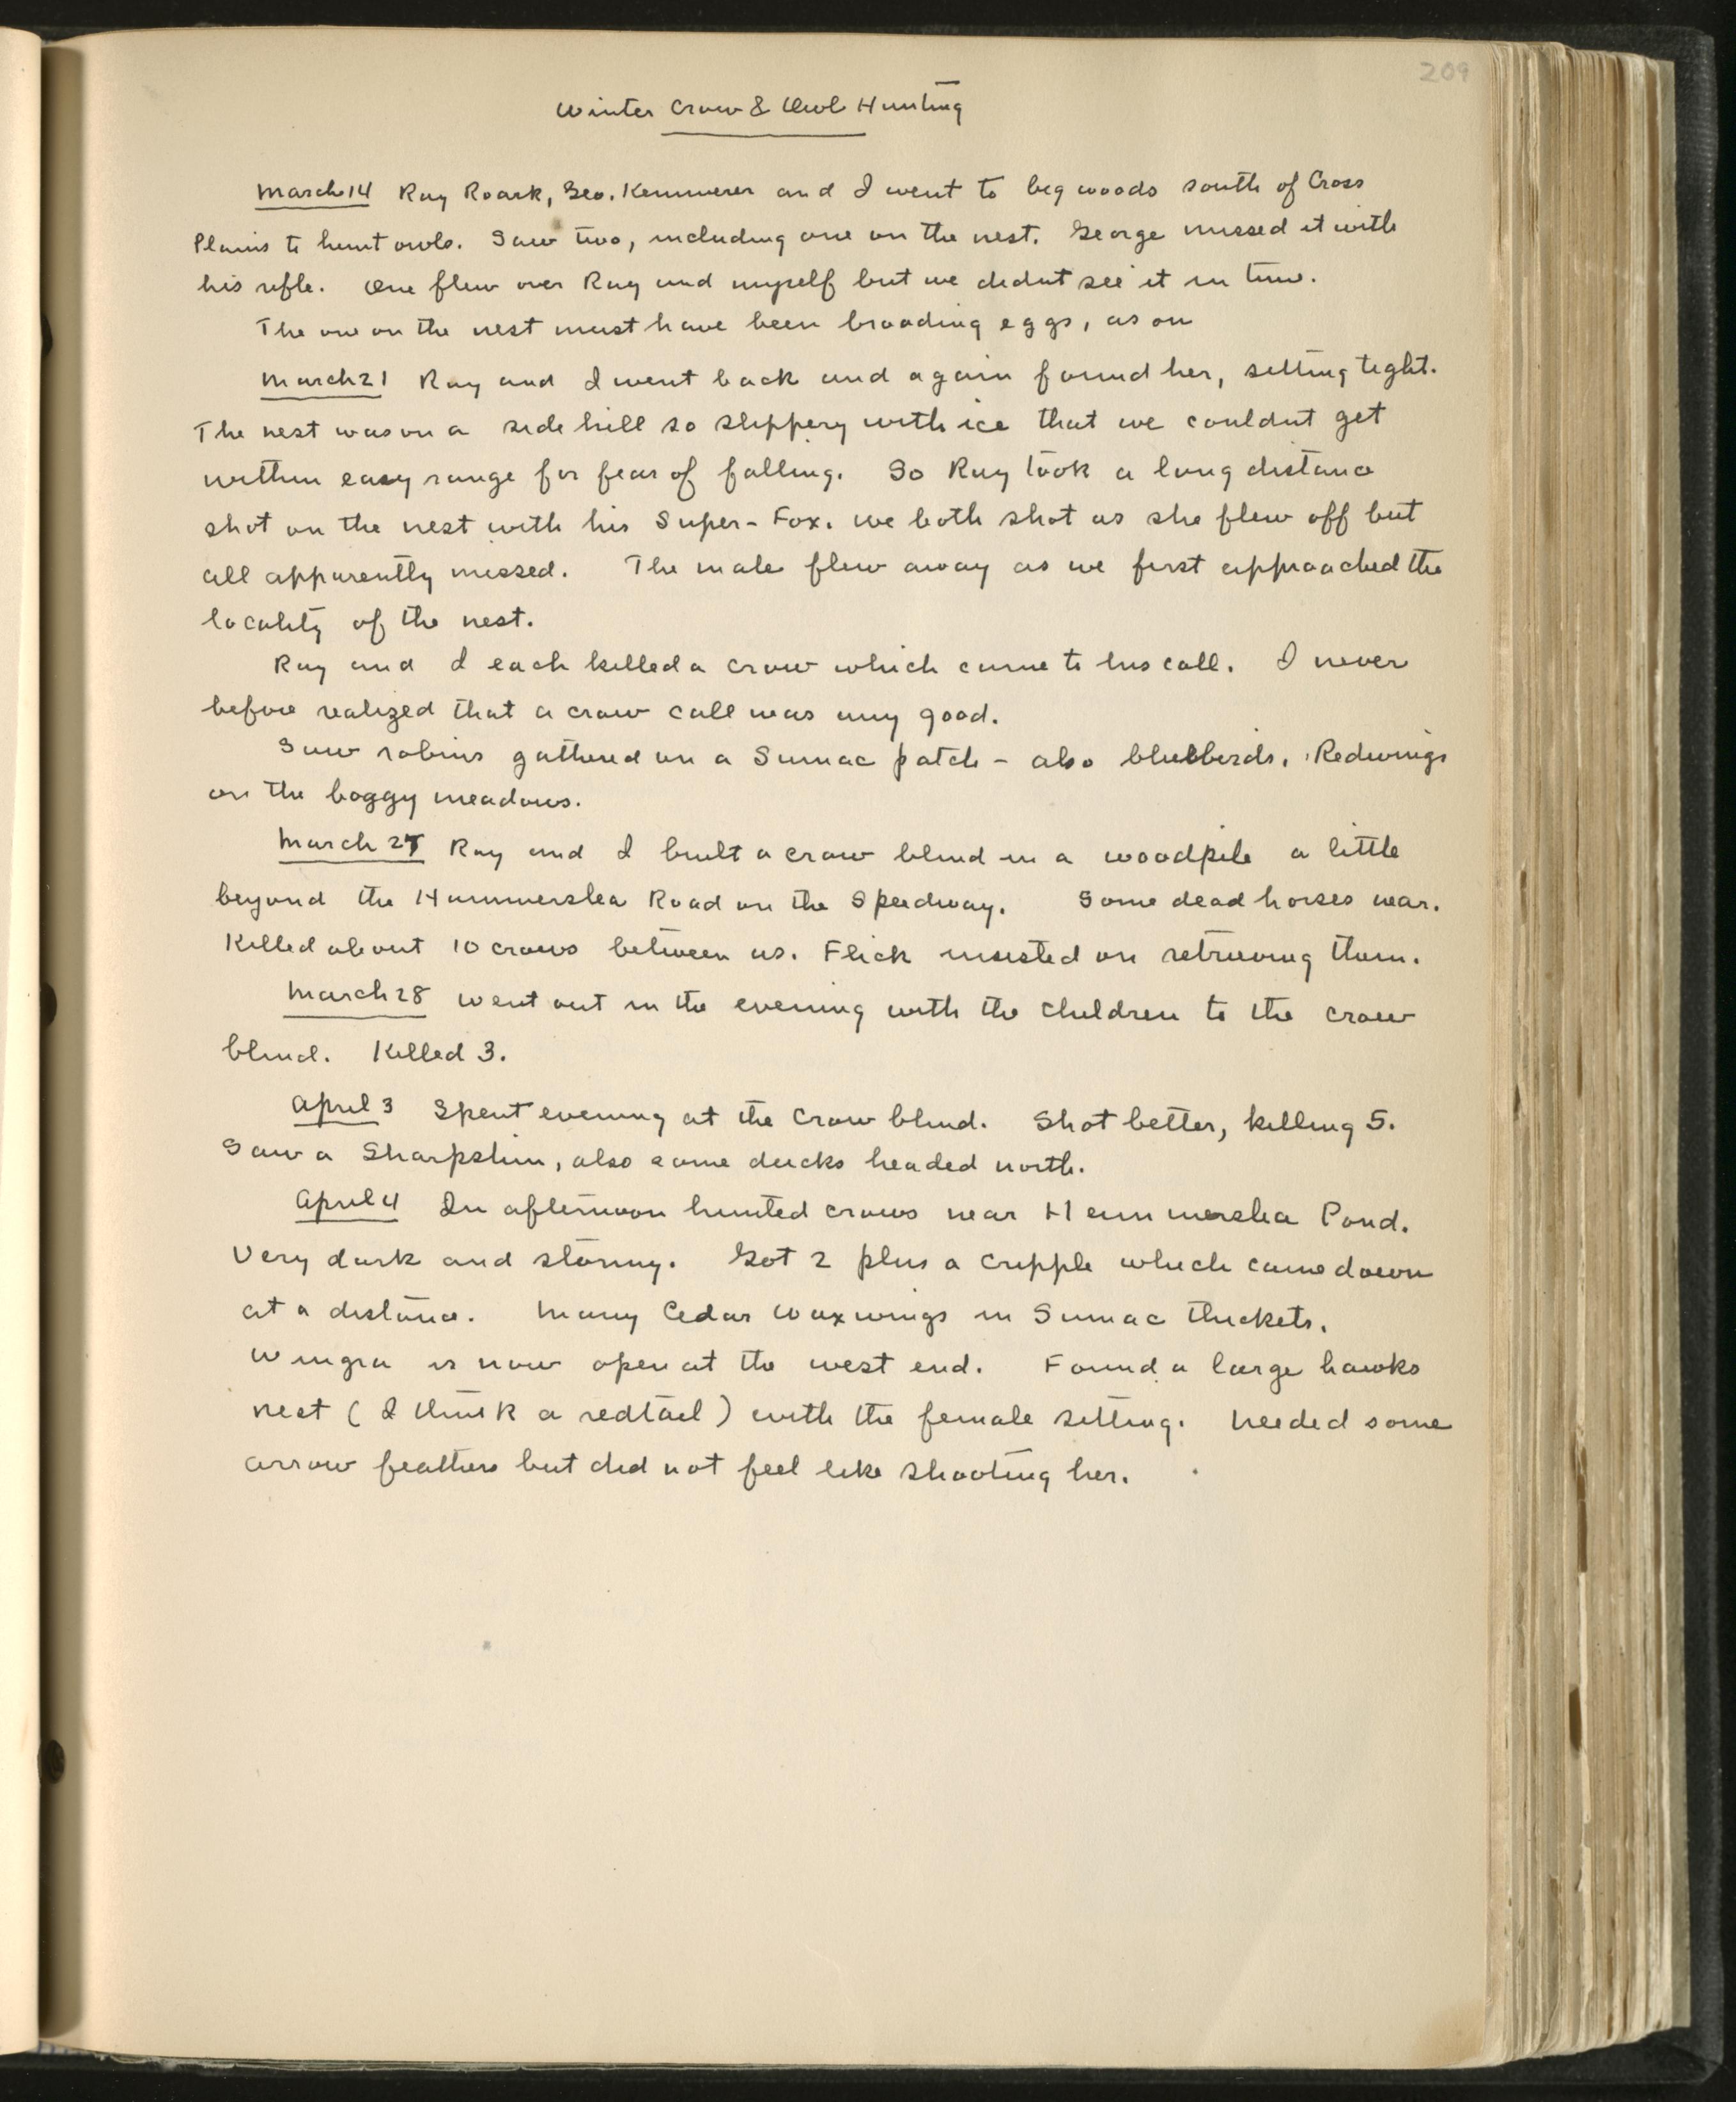 209
Winter Crow & Owl Hunting
March 14 Ray Roark, Geo. Kemmerer and I went to big woods south of Cross
Plains to hunt owls. Saw two, including one on the nest. George missed it with
his rifle. One flew over Ray and myself but we didnt see it in time.
The one on the nest must have been brooding eggs, as on
March 21 Ray and I went back and again found her, setting tight.
The nest was on a side hill so slippery with ice that we couldnt get
within easy range for fear of falling. So Ray took a long distance
shot on the nest with his Super-Fox. We both shot as she flew off but
all apparently missed. The male flew away as we first approached the
locality of the nest.
Ray and I each killed a crow which came to his call. I never
before realized that a crow call was any good.
Saw robins gathered on a Sumac patch - also bluebirds. Redwings
on the boggy meadows.
March 27 Ray and I built a crow blind in a woodpile a little
beyond the Hammerslea Road on the Speedway. Some dead horses near.
Killed about 10 crows between us. Flick insisted on retrieving them.
March 28 Went out in the evening with the children to the crow
blind. Killed 3.
April 3 Spent evening at the Crow blind. Shot better, killing 5.
Saw a Sharpshin, also some ducks headed north.
April 4 In afternoon hunted crows near Hammerslea Pond.
Very dark and stormy. Got 2 plus a cripple which came down
at a distance. Many Cedar Waxwings in Sumac thickets.
Wingra is now open at the west end. Found a large hawks
nest (I think a redtail) with the female setting. Needed some
arrow feathers but did not feel like shooting her.